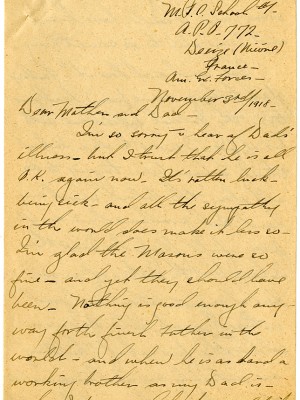 M.T.C. School #1.
A.P.O. 772.
Decize (Nièvre)
France -
Am. Ex. Forces -
November 3rd/1918.
Dear Mother and Dad -
I'm so sorry to hear of Dad's
illness - but I trust that he is all
O.K. again now. It's rotten luck
being sick - and all the sympathy
in the world does make it less so -
I'm glad the Masons were so
fine - and yet they should have
been - Nothing is good enough any-
way for the finest father in the
world - and when he is as hard a
working brother as my Dad is -